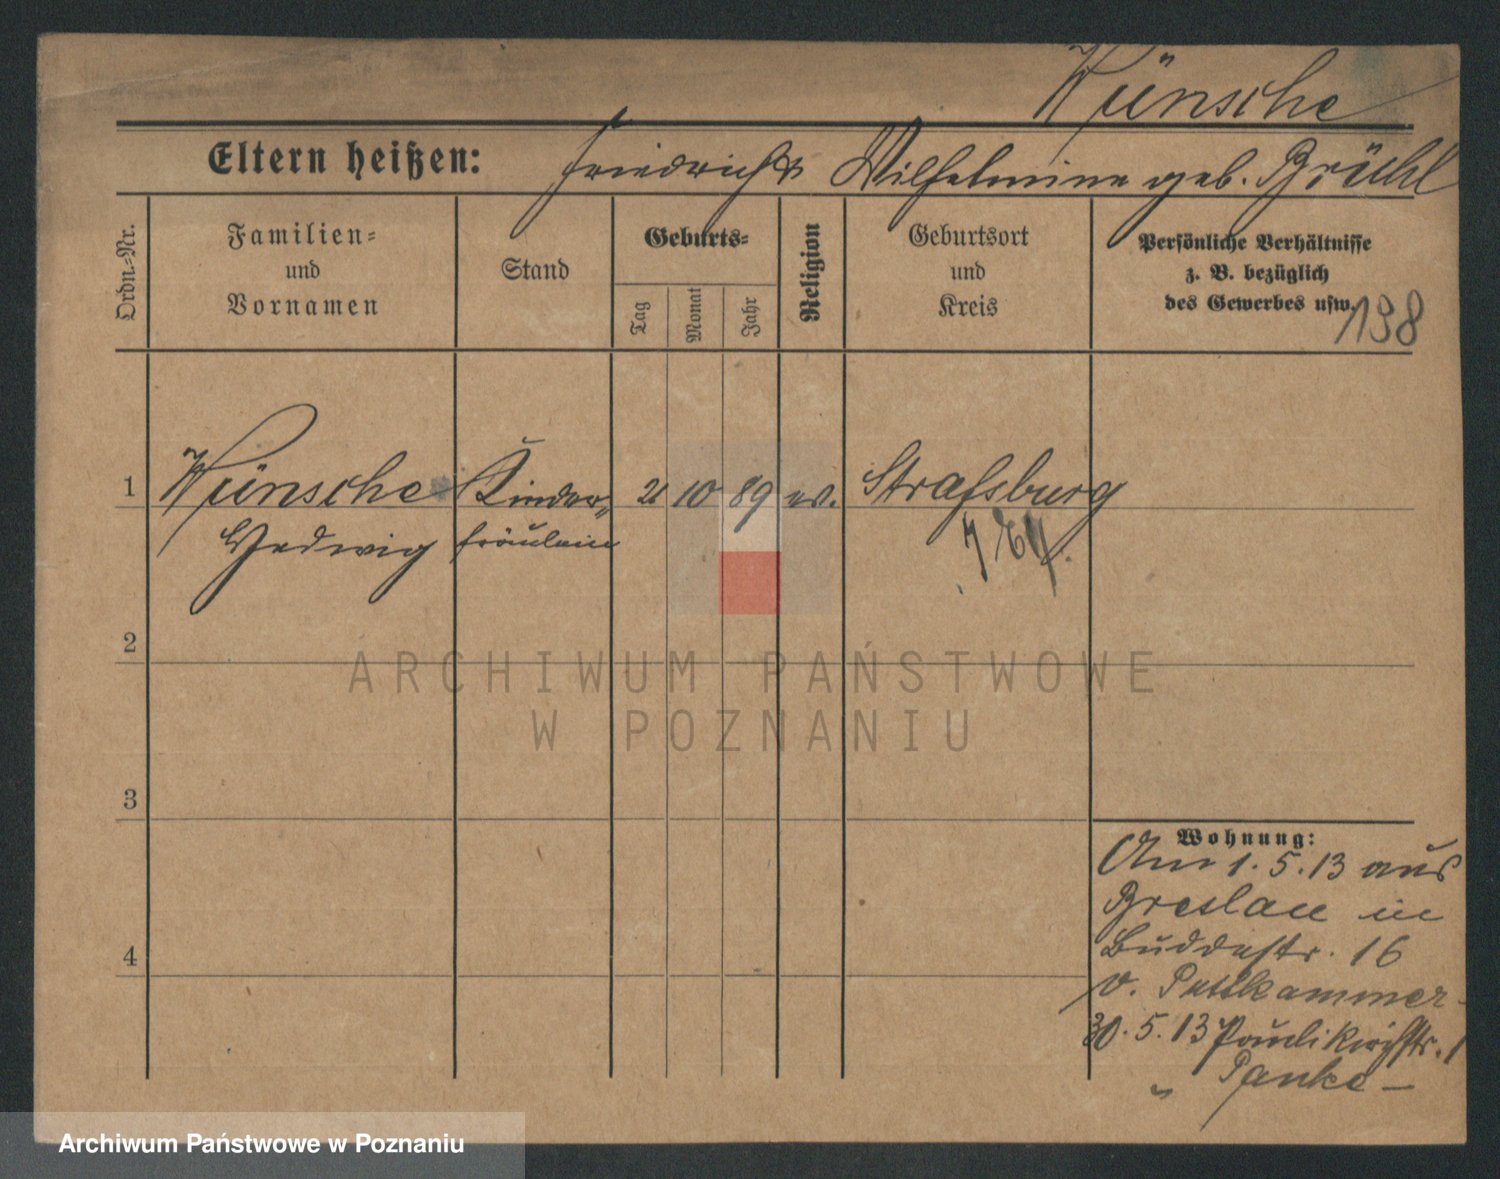 Wünsche
Eltern heißen: Friedrich & Wilhelmine geb. Brühl
Ordn.-Nr.
Familien-
und
Vornamen
Stand
Geburts-
Tag
Monat
Jahr
Religion
Geburtsort
und
Kreis
Persönliche Verhältnisse
z. B. bezüglich
des Gewerbes usw.
198
1 Wünsche Kinder- 21 10 89 ev. Strassburg
Hedwig fräulein
2
3
4
Wohnung:
Am 1. 5. 13 aus
Breslau in
Buddestr. 16
v. Puttkammer
30. 5. 13 Paulikirchstr. 1
" Panke
ARCHIWUM PAŃSTWOWE
W POZNANIU
Archiwum Państwowe w Poznaniu